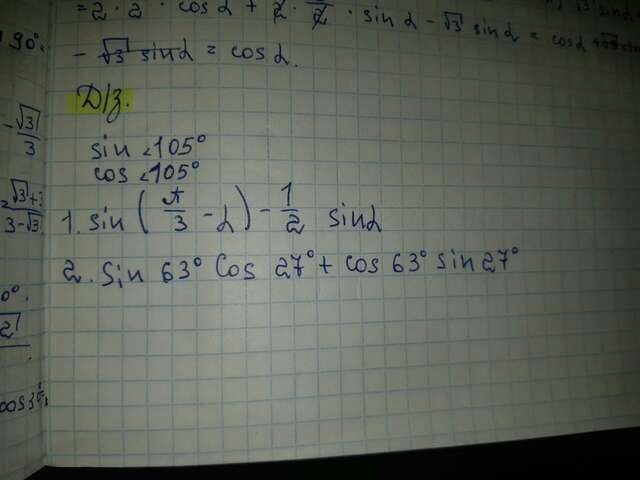 = 2 · 2 · cos α + 2 · · sin α - √3 sin α = cos α
90°.
- √3 sin α = cos α.
Д/з.
-√3/3
sin <105°
cos <105°
3-√3
1. sin (π/3 - α) - 1/2 sin α
2. sin 63° cos 27° + cos 63° sin 27°